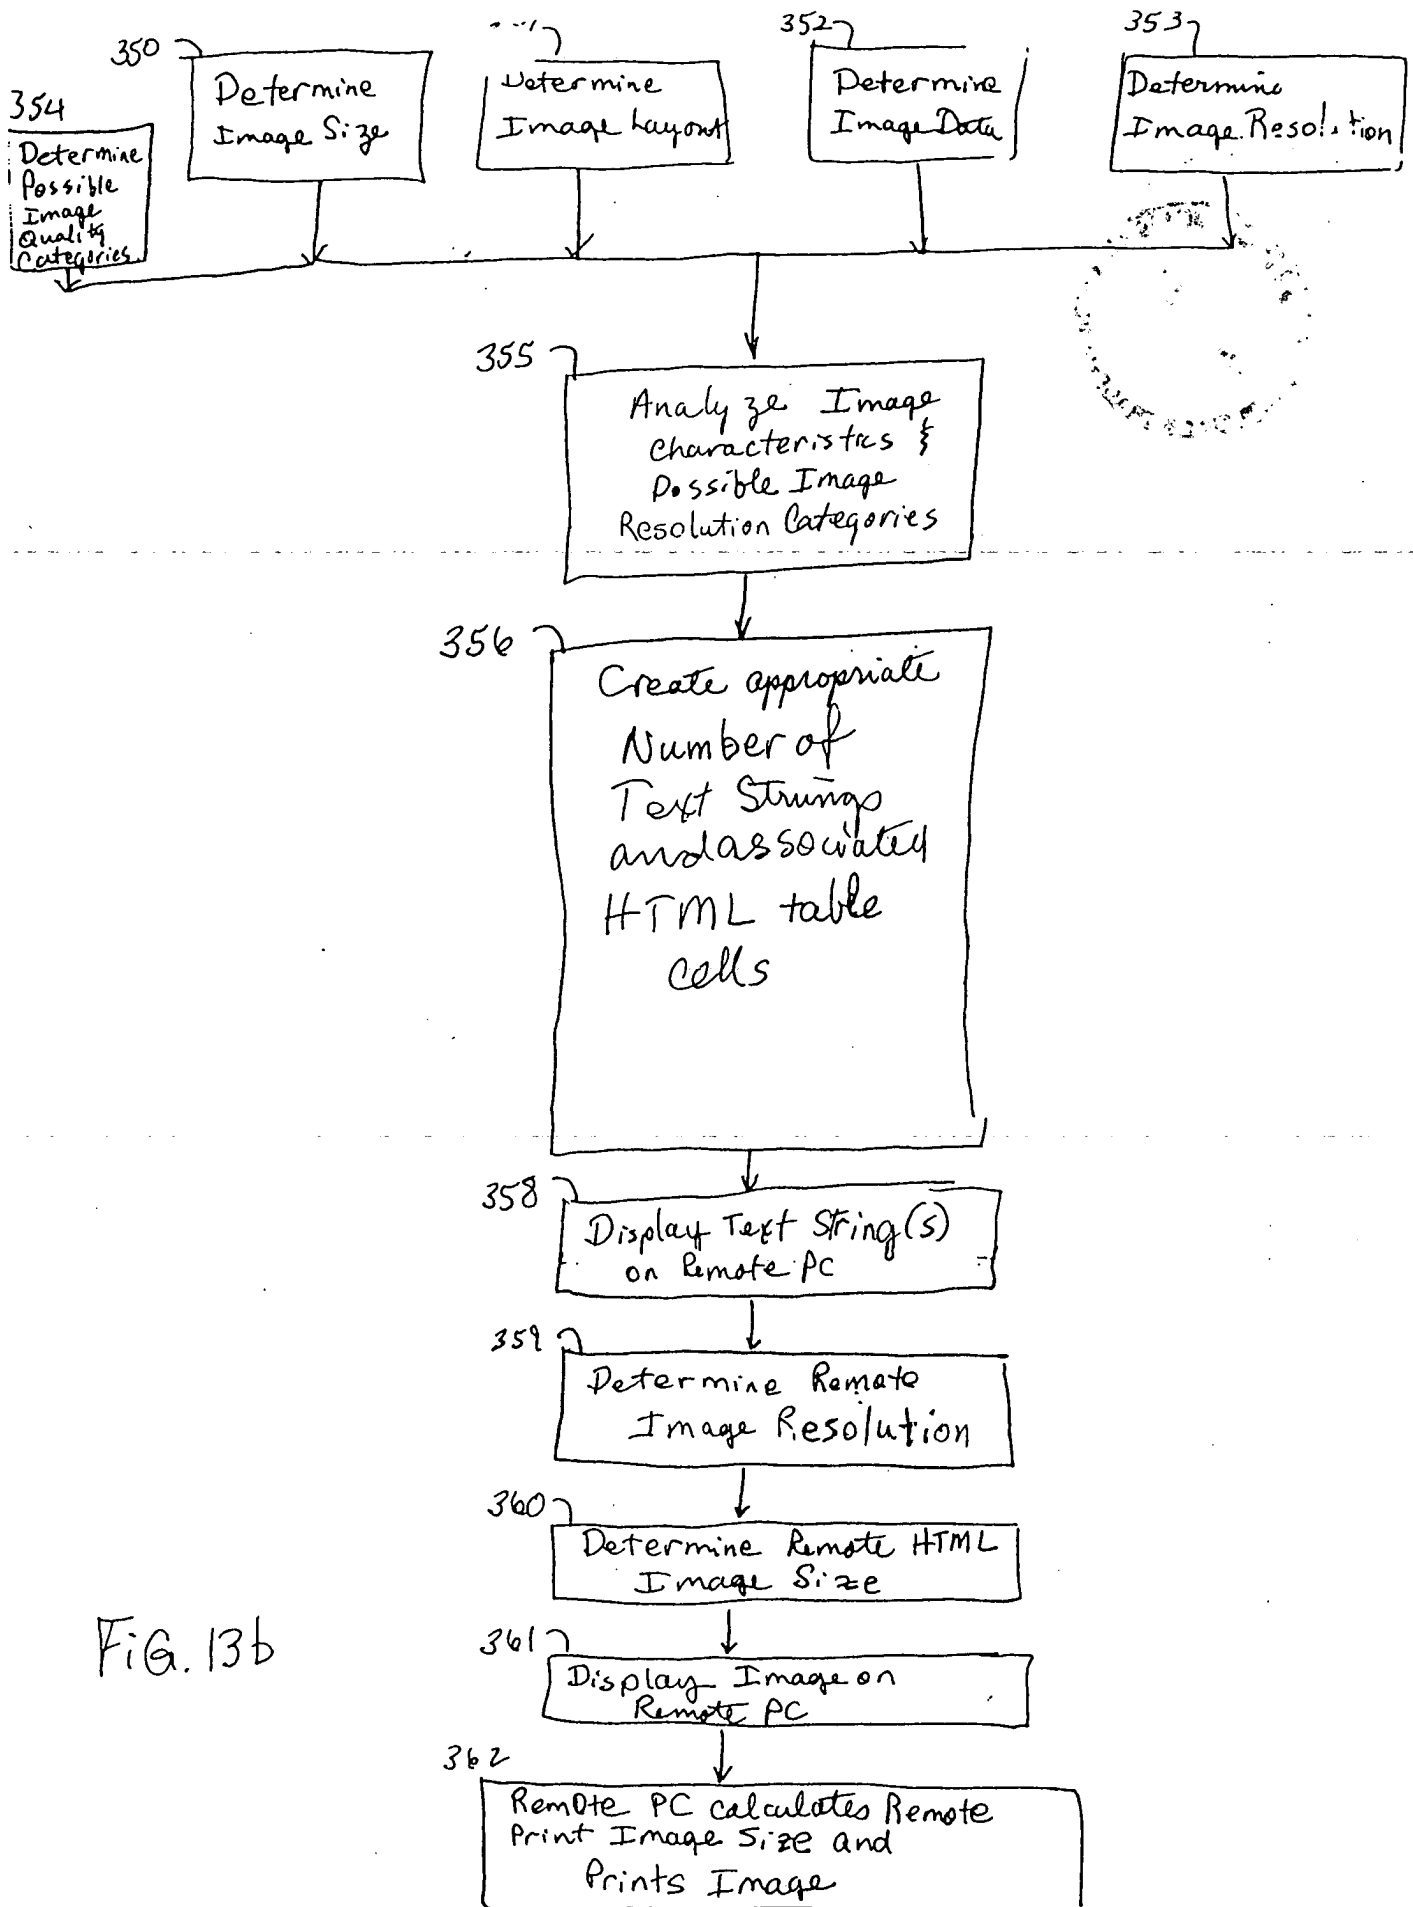 350
352
353
354
Determine
Image Size
Determine
Image Layout
Determine
Image Data
Determine
Image Resolution
Determine
Possible
Image
Quality
Categories
355
Analyze Image
Characteristics &
Possible Image
Resolution Categories
356
Create appropriate
Number of
Text Strings
and associated
HTML table
cells
358
Display Text String(s)
on Remote PC
359
Determine Remote
Image Resolution
360
Determine Remote HTML
Image Size
361
Display Image on
Remote PC
362
Remote PC calculates Remote
Print Image Size and
Prints Image
FIG. 13b